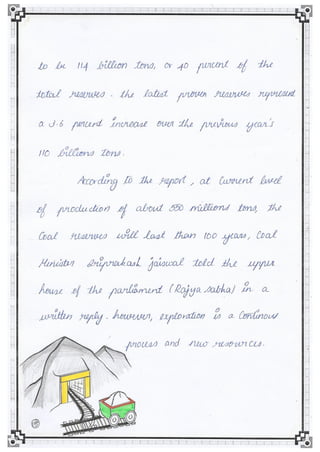 to be 114 billion tons, or 40 percent of the
total reserves. the latest proven reserves represent
a 3.6 percent increase over the previous year's
110 billions tons.
According to the report, at Current level
of production of about 550 millions tons, the
Coal reserves will last than 100 years, Coal
Minister Sriprakash jaiswal told the upper
house of the parliament (Rajya sabha) in a
written reply. however, exploration is a Continous
process and new resources.